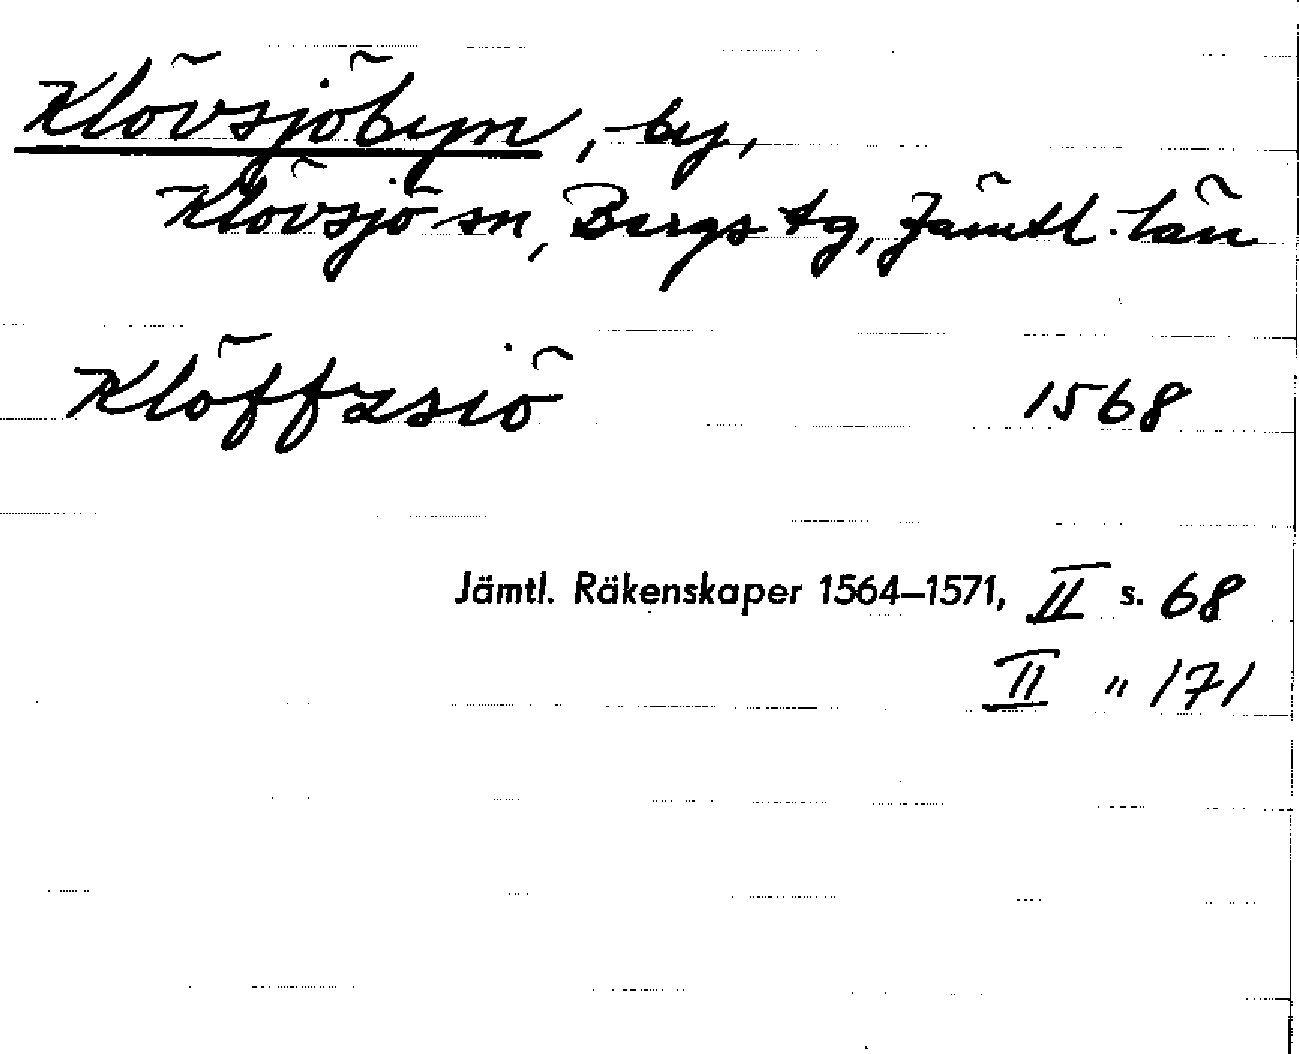 Klövsjöbyn, by,
Klövsjö sn, Bergs tg, Jämtl. län
Klöffzsiö 1568
Jämtl. Räkenskaper 1564–1571, II s. 68
II " 171